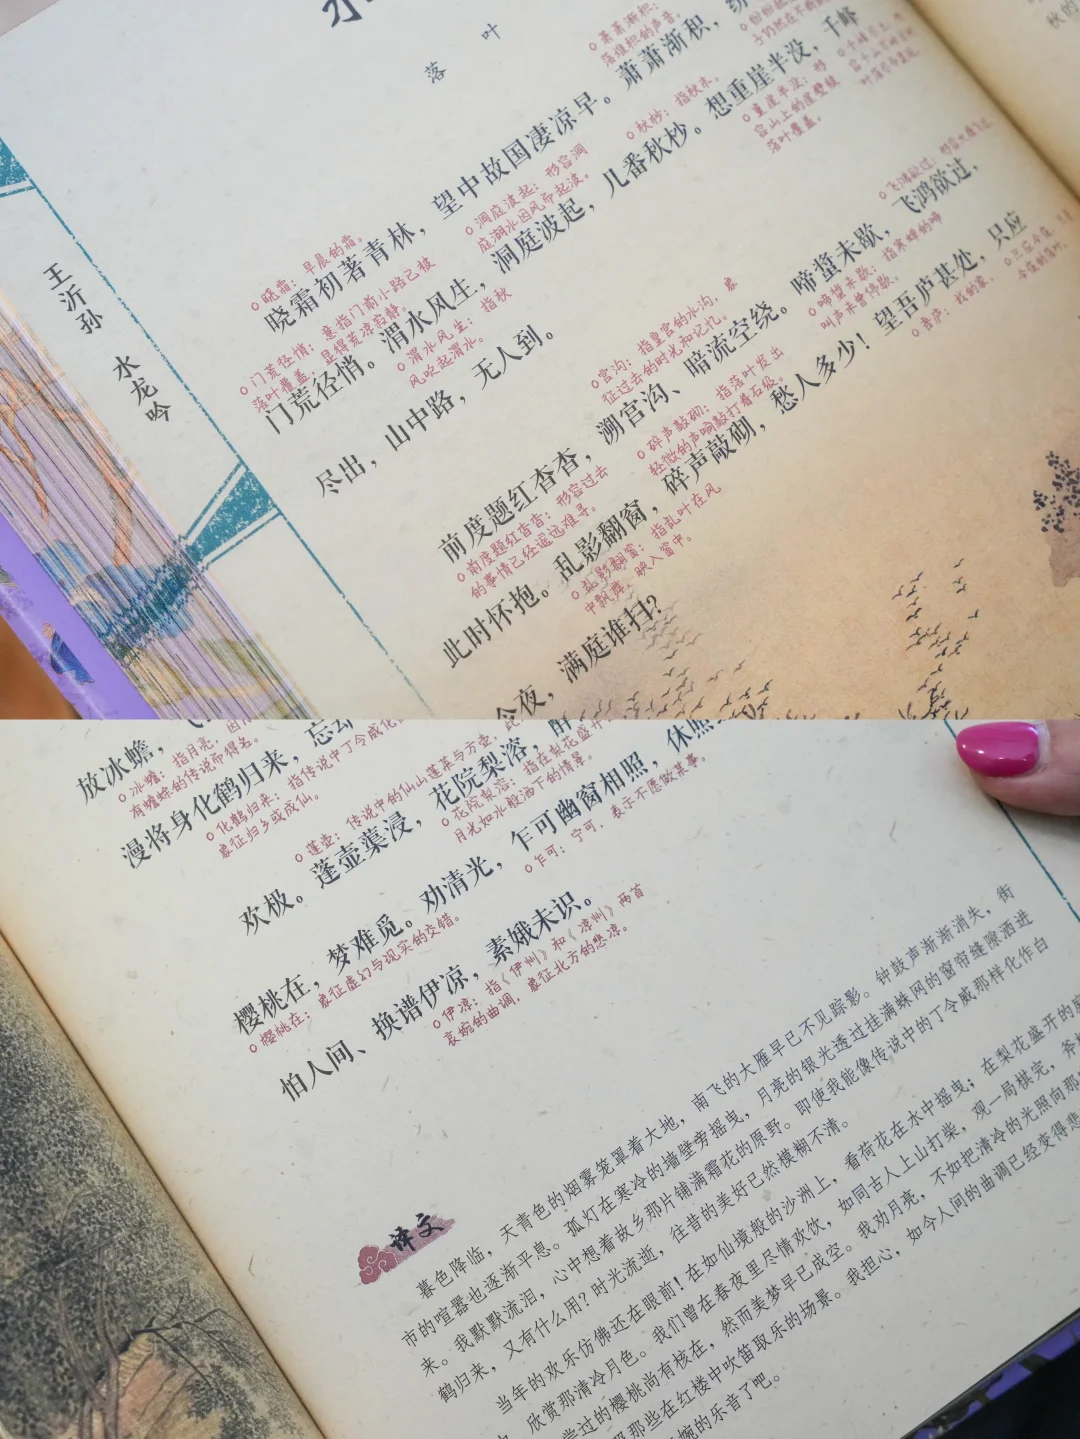 落叶
王沂孙 水龙吟
晓霜初著青林，望中故国凄凉早。萧萧渐积，
○晓霜：早晨的霜。
○萧萧渐积：
落堆积的声音。
门荒径悄。渭水风生，洞庭波起，几番秋杪。想重崖半没，千峰
○门荒径悄：意指门前小路已被
落叶覆盖，显得荒凉寂静。
○渭水风生：指秋
风吹起渭水。
○洞庭波起：形容洞
庭湖水因风而起波。
○秋杪：指秋末。
○重崖半没：形
容山上的崖壁被
落叶覆盖。
尽出，山中路，无人到。
前度题红杳杳，溯宫沟、暗流空绕。啼螀未歇，飞鸿欲过，
○前度题红杳杳：形容过去
的事情已经遥远难寻。
○宫沟：指皇宫的水沟，象
征过去的时光和记忆。
○啼螀未歇：指寒蝉的啼
叫声未曾停歇。
此时怀抱。乱影翻窗，碎声敲砌，愁人多少！望吾庐甚处，只应
○乱影翻窗：指乱叶在风
中飘舞，映入窗中。
○碎声敲砌：指落叶发出
轻微的声响敲打着石级。
○吾庐：
我的家。
今夜，满庭谁扫？
放冰蟾，
○冰蟾：指月亮，因
有蟾蜍的传说而得名。
漫将身化鹤归来，忘却
○化鹤归来：指传说中丁令威化
象征归乡或成仙。
欢极。蓬壶蕖浸，花院梨溶，醉
○蓬壶：传说中的仙山蓬莱与方壶，此
○花院梨溶：指在梨花盛开
月光如水般洒下的情景。
樱桃在，梦难觅。劝清光，乍可幽窗相照，休照
○樱桃在：象征虚幻与现实的交错。
○乍可：宁可，表示不愿做某事。
怕人间、换谱伊凉，素娥未识。
○伊凉：指《伊州》和《凉州》两首
哀婉的曲调，象征北方的悲凉。
译文
暮色降临，天青色的烟雾笼罩着大地，南飞的大雁早已不见踪影。钟鼓声渐渐消失，街
市的喧嚣也逐渐平息。孤灯在寒冷的墙壁旁摇曳，月亮的银光透过挂满蛛网的窗帘缝隙洒进
来。我默默流泪，心中想着故乡那片铺满霜花的原野。即使我能像传说中的丁令威那样化作白
鹤归来，又有什么用？时光流逝，往昔的美好已然模糊不清。
当年的欢乐仿佛还在眼前！在如仙境般的沙洲上，看荷花在水中摇曳；在梨花盛开的
欣赏那清冷月色。我们曾在春夜里尽情欢饮，如同古人上山打柴，观一局棋完，斧
尝过的樱桃尚有核在，然而美梦早已成空。我劝月亮，不如把清冷的光照向那
照那些在红楼中吹笛取乐的场景。我担心，如今人间的曲调已经变得悲
婉的乐音了吧。